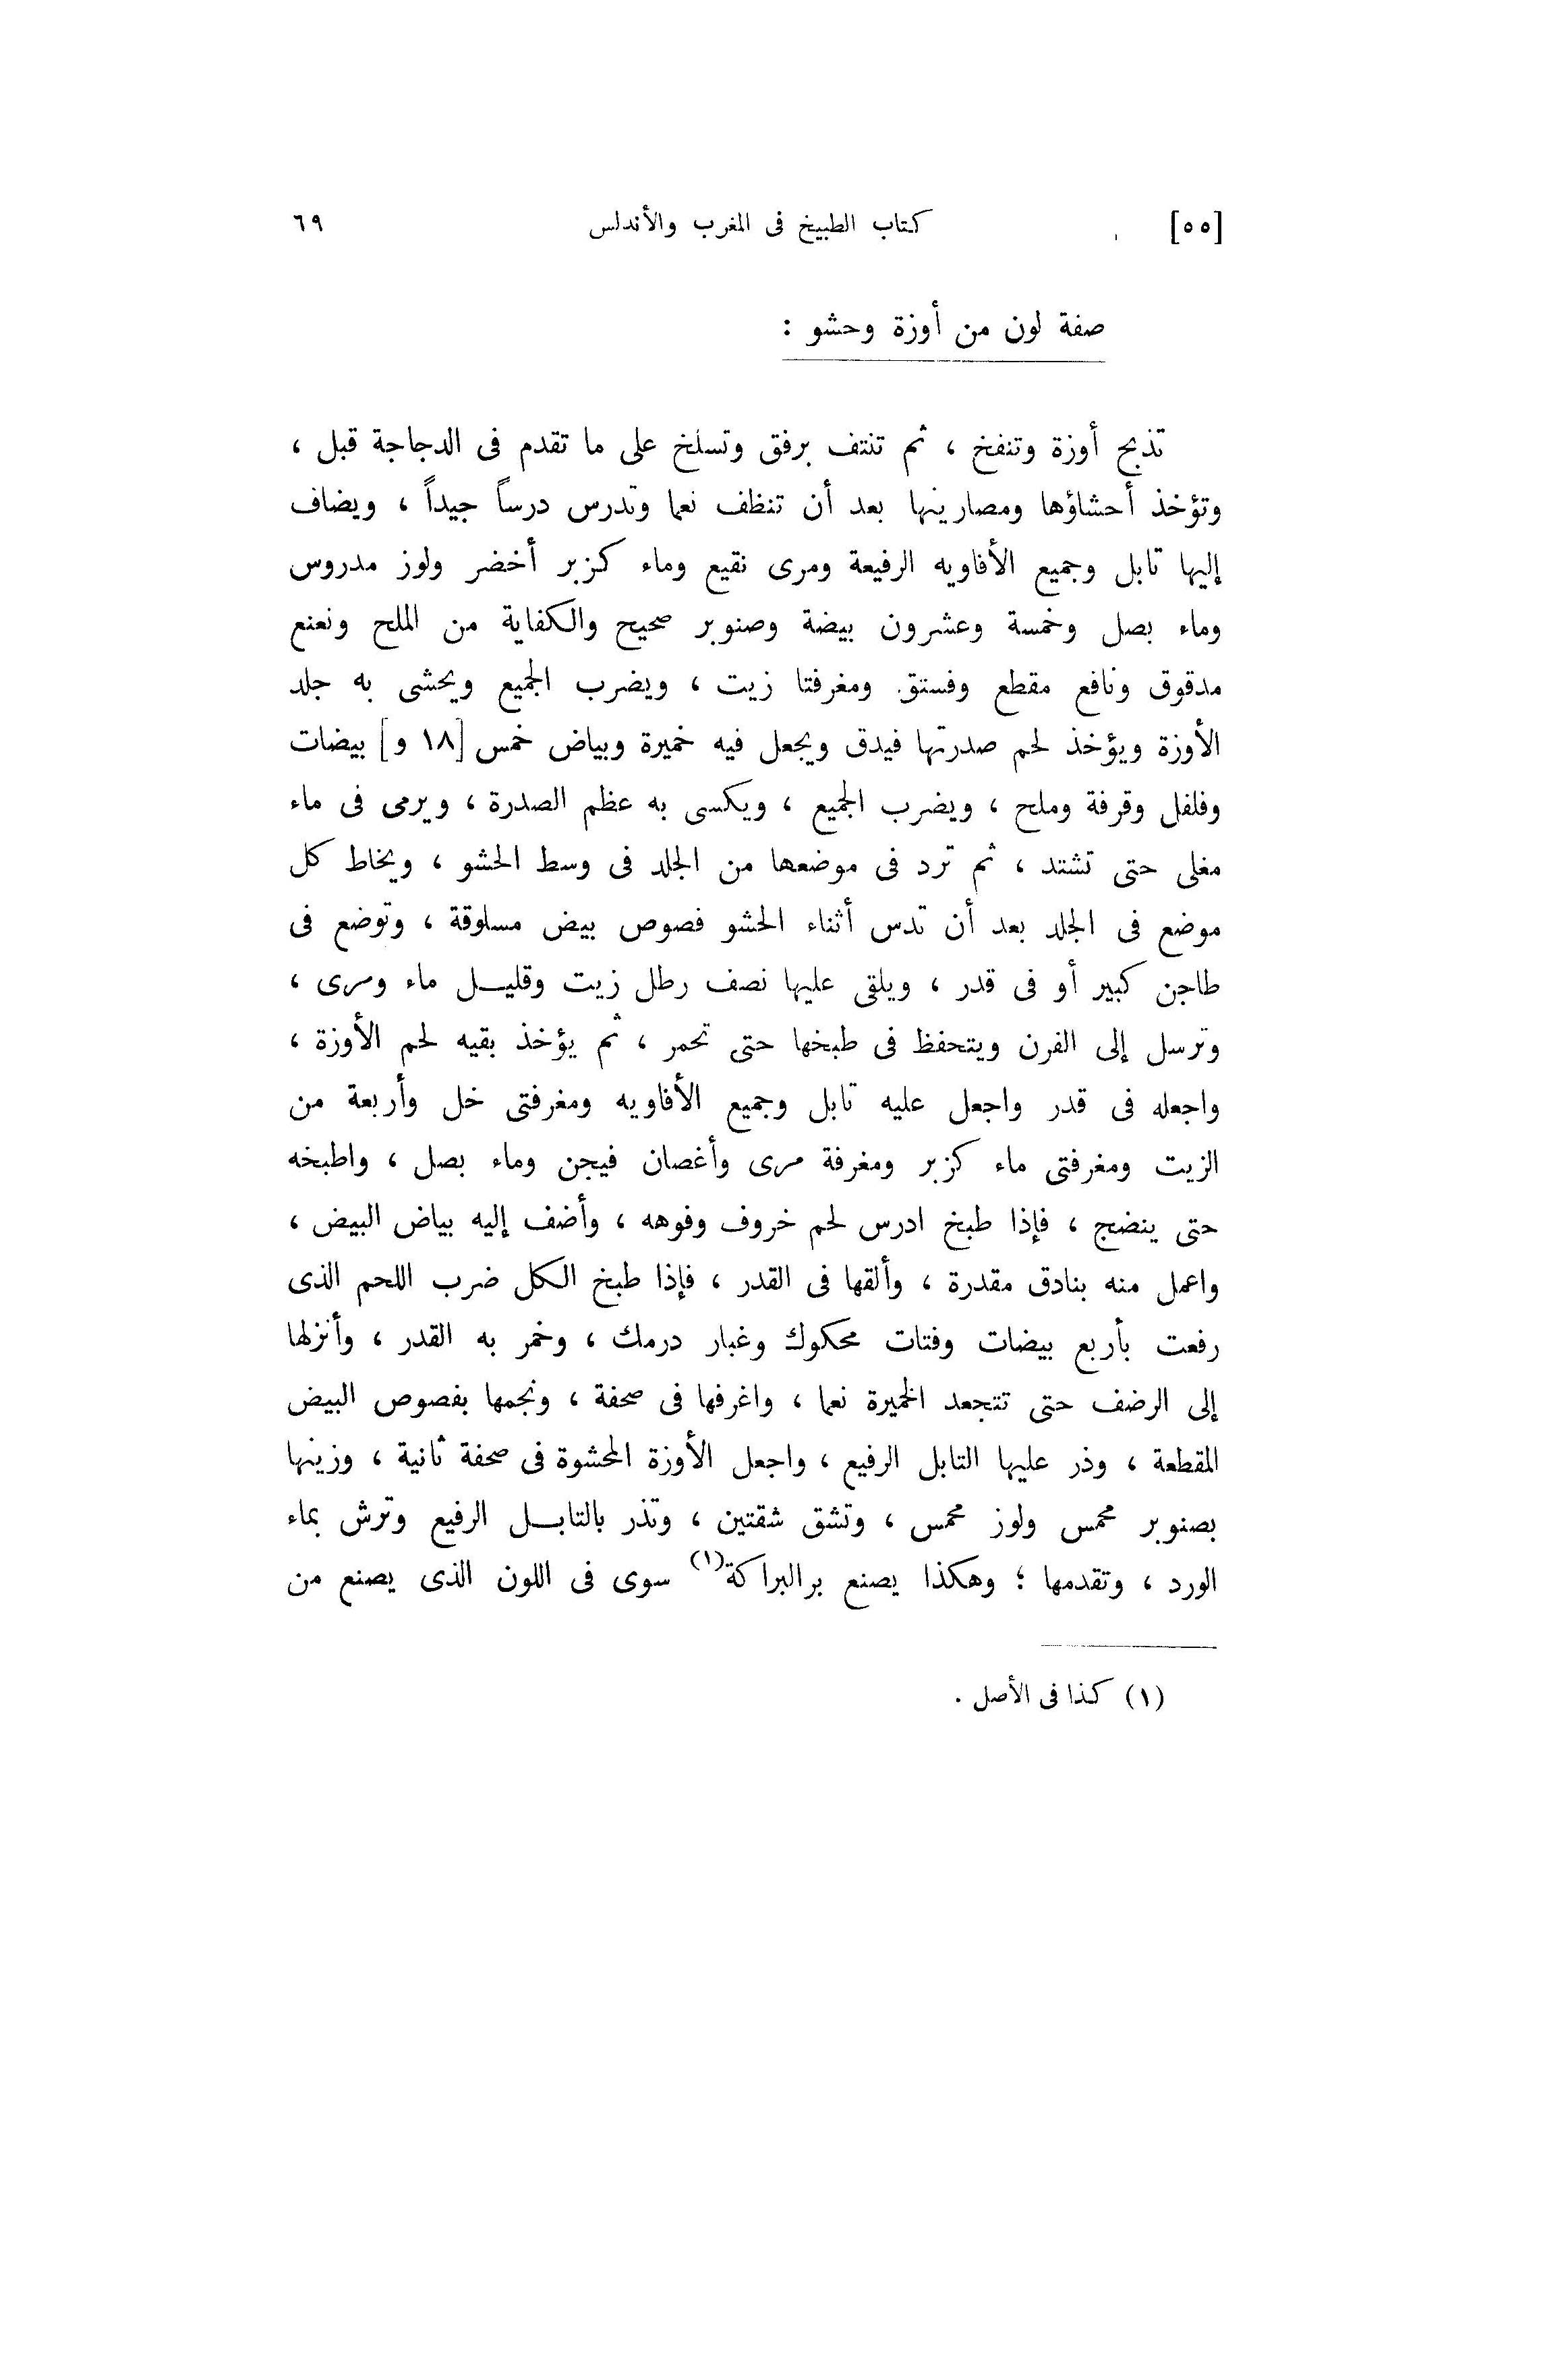 [٥٥] كتاب الطبيخ فى المغرب والأندلس ٦٩
صفة لون من أوزة وحشو :
تذبح أوزة وتنفخ ، ثم تنتف برفق وتسلخ على ما تقدم فى الدجاجة قبل ،
وتؤخذ أحشاؤها ومصارينها بعد أن تنظف نعما وتدرس درساً جيداً ، ويضاف
إليها تابل وجميع الأفاويه الرفيعة ومرى نقيع وماء كزبر أخضر ولوز مدروس
وماء بصل وخمسة وعشرون بيضة وصنوبر صحيح والكفاية من الملح ونعنع
مدقوق ونافع مقطع وفستق. ومغرفتا زيت ، ويضرب الجميع ويحشى به جلد
الأوزة ويؤخذ لحم صدرتها فيدق ويجعل فيه خميرة وبياض خمس [١٨ و] بيضات
وفلفل وقرفة وملح ، ويضرب الجميع ، ويكسى به عظم الصدرة ، ويرمى فى ماء
مغلى حتى تشتد ، ثم ترد فى موضعها من الجلد فى وسط الحشو ، ويخاط كل
موضع فى الجلد بعد أن تدس أثناء الحشو فصوص بيض مسلوقة ، وتوضع فى
طاجن كبير أو فى قدر ، ويلقى عليها نصف رطل زيت وقليل ماء ومرى ،
وترسل إلى الفرن ويتحفظ فى طبخها حتى تحمر ، ثم يؤخذ بقيه لحم الأوزة ،
واجعله فى قدر واجعل عليه تابل وجميع الأفاويه ومغرفتى خل وأربعة من
الزيت ومغرفتى ماء كزبر ومغرفة مرى وأغصان فيجن وماء بصل ، واطبخه
حتى ينضج ، فإذا طبخ ادرس لحم خروف وفوهه ، وأضف إليه بياض البيض ،
واعمل منه بنادق مقدرة ، وألقها فى القدر ، فإذا طبخ الكل ضرب اللحم الذى
رفعت بأربع بيضات وفتات محكوك وغبار درمك ، وخمر به القدر ، وأنزلها
إلى الرضف حتى تتجعد الخميرة نعما ، واغرفها فى صحفة ، ونجمها بفصوص البيض
المقطعة ، وذر عليها التابل الرفيع ، واجعل الأوزة المحشوة فى صحفة ثانية ، وزينها
بصنوبر محمس ولوز محمس ، وتشق شقتين ، وتذر بالتابل الرفيع وترش بماء
الورد ، وتقدمها ؛ وهكذا يصنع برالبراكة(١) سوى فى اللون الذى يصنع من
(١) كذا فى الأصل .